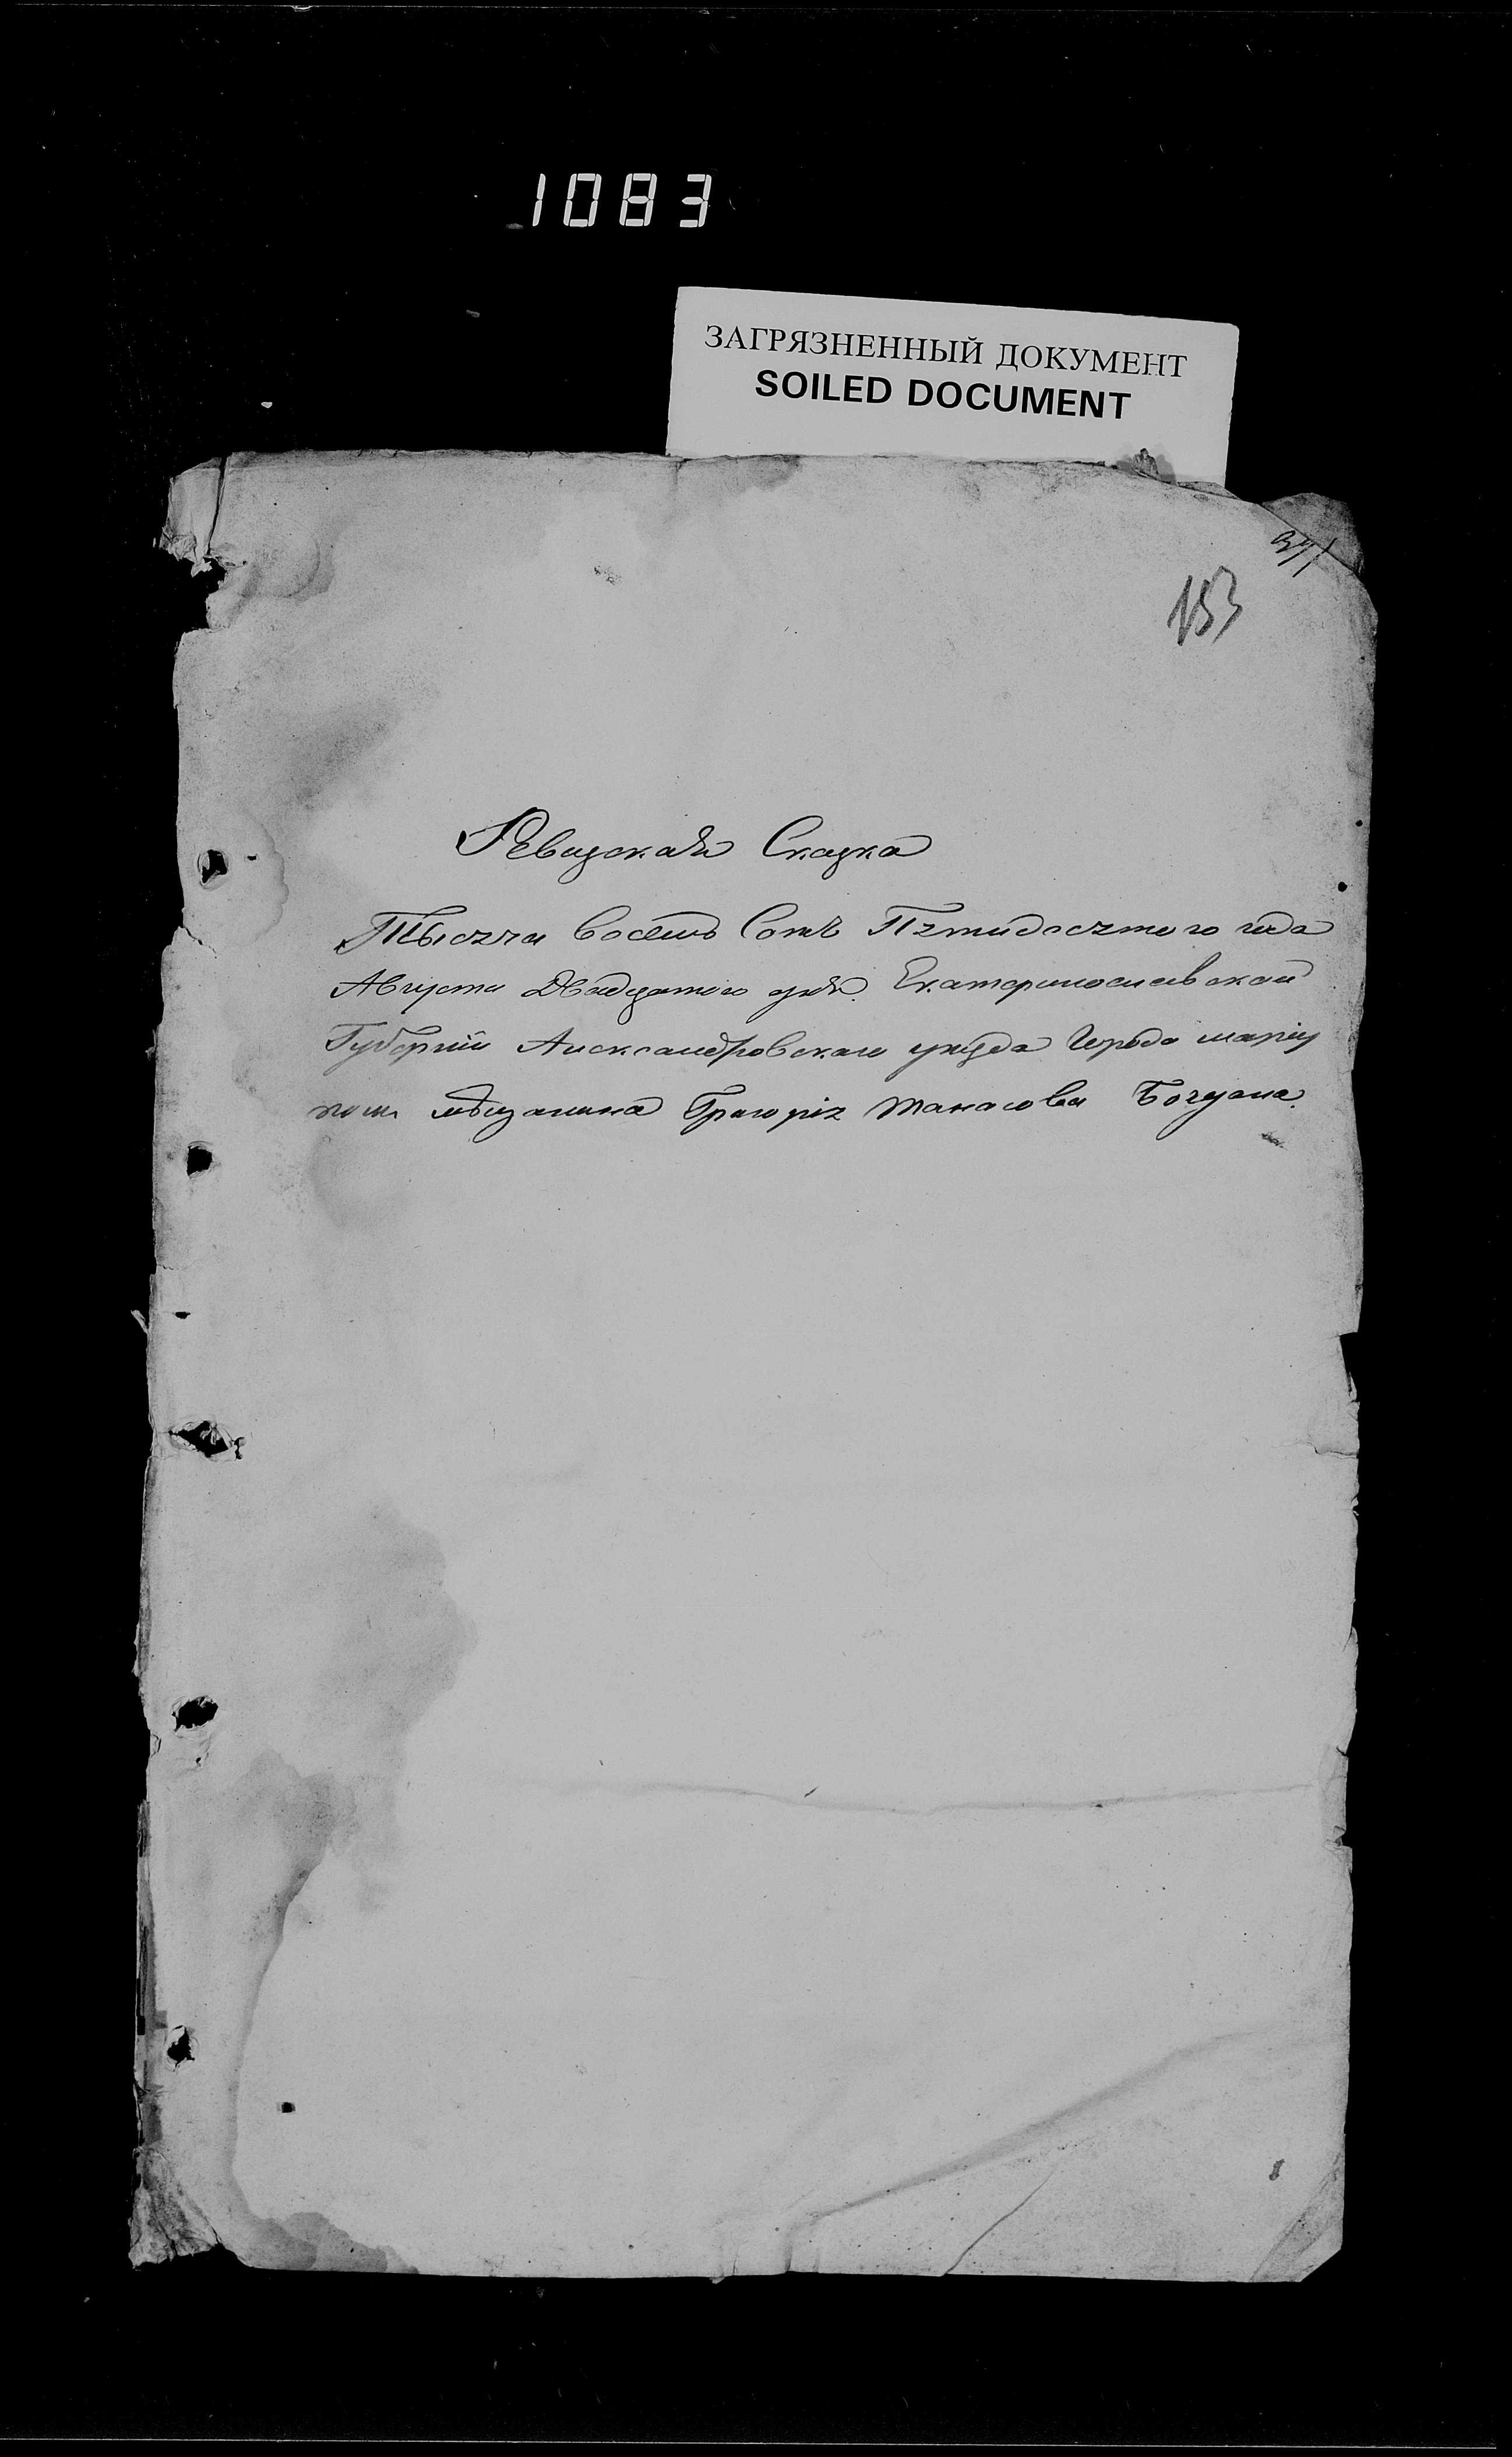 1083
ЗАГРЯЗНЕННЫЙ ДОКУМЕНТ
SOILED DOCUMENT
153
Ревизская Сказка
Тысяча восемь Сотъ Пятидесятого года
Августа Двадцатого дня. Екатеринославской
Губерніи Александровскаго уѣзда Города маріу
поля мѣщанина Григорія Танасова